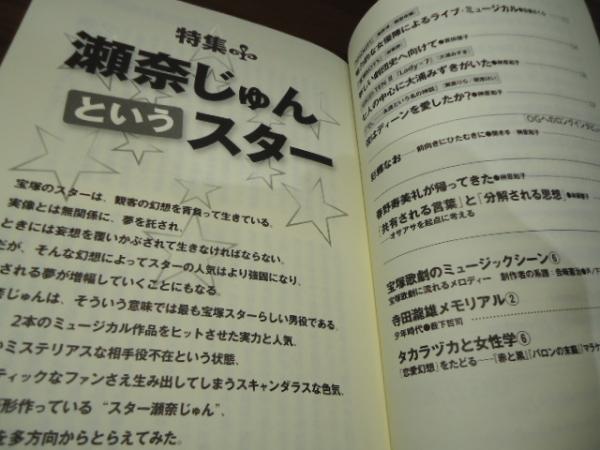 特集
瀬奈じゅん
という スター
宝塚のスターは、観客の幻想を背負って生きている。
実像とは無関係に、夢を託され、
ときには妄想を覆いかぶされて生きなければならない。
だが、そんな幻想によってスターの人気はより強固になり、
される夢が増幅していくことにもなる。
奈じゅんは、そういう意味では最も宝塚スターらしい男役である。
2本のミュージカル作品をヒットさせた実力と人気、
ミステリアスな相手役不在という状態、
ティックなファンさえ生み出してしまうスキャンダラスな色気、
形作っている“スター瀬奈じゅん”、
を多方向からとらえてみた。
な女優陣によるライブ・ミュージカル
しい劇団史へ向けて
人の中心に大浦みずきがいた
はディーンを愛したか?
OGへのロングインタビュー
前向きにひたむきに
春野寿美礼が帰ってきた
「共有される言葉」と「分解される思想」
オサアサを起点に考える
宝塚歌劇のミュージックシーン⑥
宝塚歌劇に流れるメロディー 制作者の系譜
寺田瀧雄メモリアル②
少年時代●藪下哲司
タカラヅカと女性学⑥
「恋愛幻想」をたどる──『赤と黒』『バロンの末裔』『マラケ